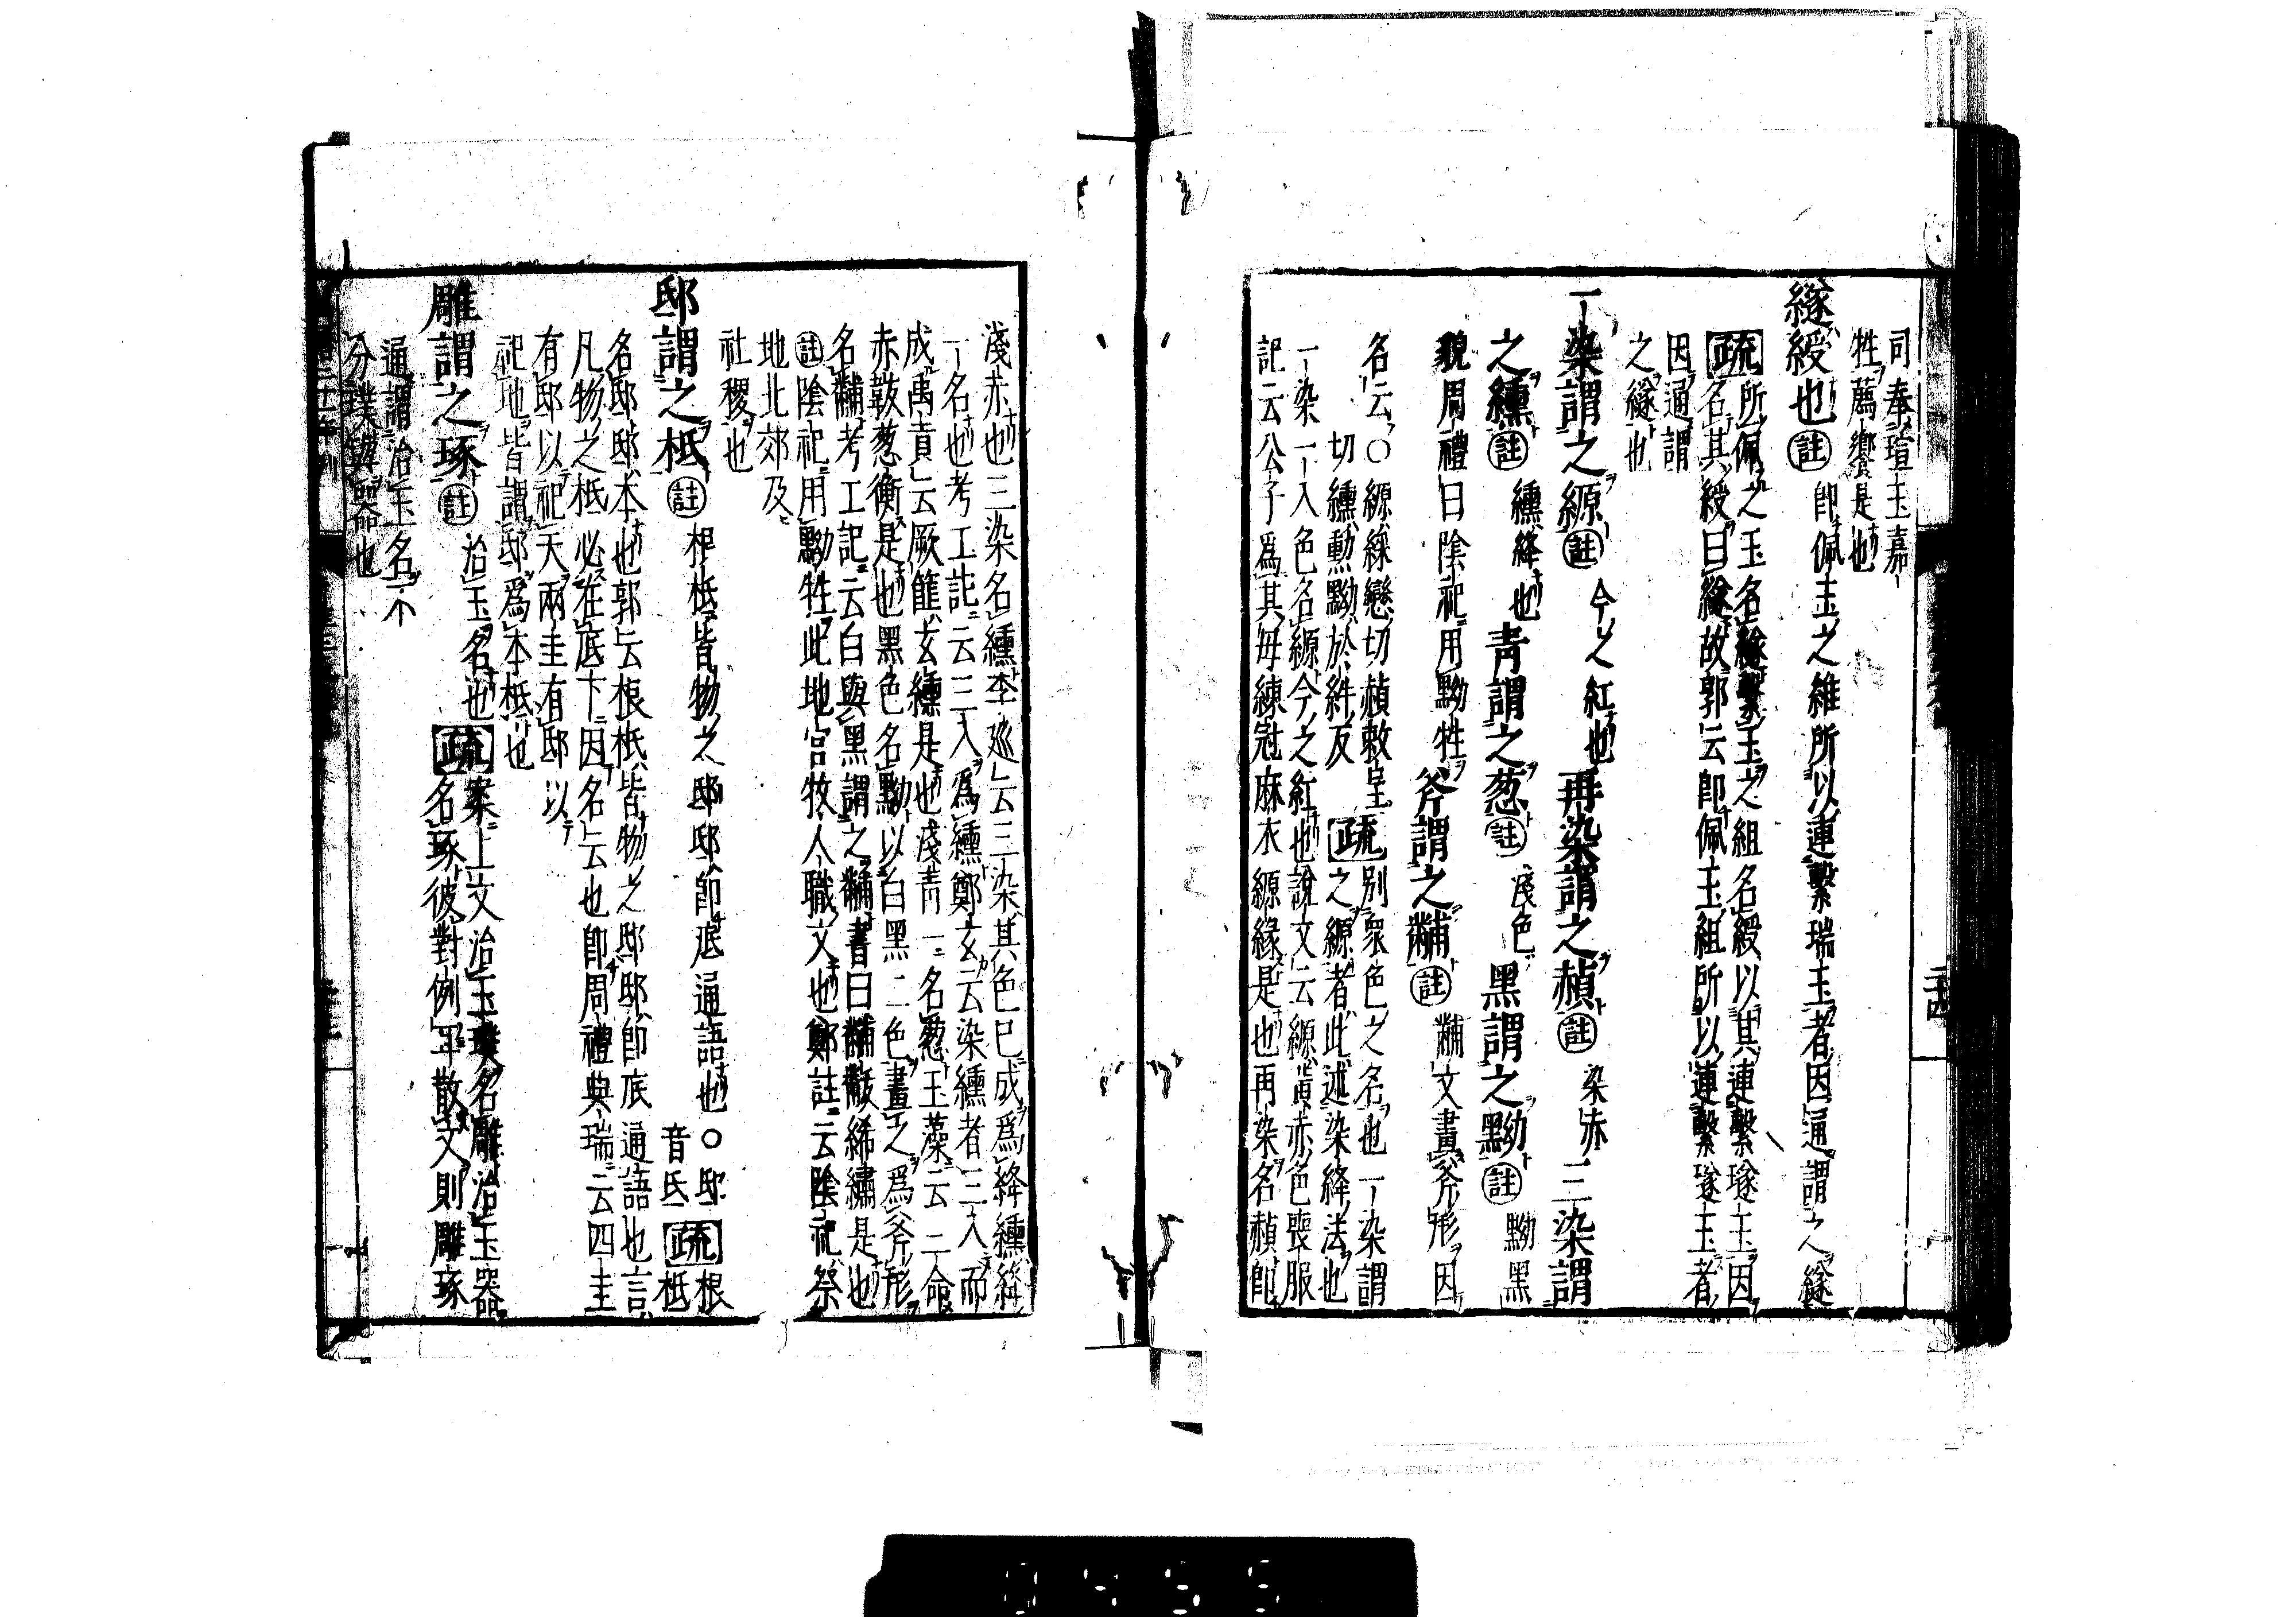 司奉瑄玉嘉
牲薦饗是也
繸綬也註即佩玉之維所以連繫瑞玉者因通謂之繸
疏所佩之玉名繸繫玉之組名綬以其連繫璲玉因
名其綬曰繸故郭云即佩玉組所以連繫璲玉者
因通謂
之繸也
一染謂之縓註今之紅也再染謂之赬註染赤三染謂
之纁註纁絳也青謂之葱註淺色黑謂之黝註黝黑
貌周禮曰陰祀用黝牲斧謂之黼註黼文畫斧形因
名云〇縓綵戀切赬敕呈
切纁勳黝於糾反疏別衆色之名也一染謂
之縓者此述染絳法也
一染一入色名縓今之紅也說文云縓黃赤色喪服
記云公子爲其母練冠麻衣縓緣是也再染名赬即
淺赤也三染名纁李巡云三染其色已成爲絳纁絳
一名也考工記云三入爲纁鄭玄云染纁者三入而
成禹貢云厥篚玄纁是也淺青一名葱玉藻云三命
赤韍葱衡是也黑色名黝以白黑二色畫之爲斧形
名黼考工記云白與黑謂之黼書曰黼黻絺繡是也
註陰祀用黝牲此地官牧人職文也鄭註云陰祀祭
地北郊及
社稷也
邸謂之柢註根柢皆物之邸邸即底通語也〇邸
音氐疏根柢
名邸邸本也郭云根柢皆物之邸邸即底通語也言
凡物之柢必在底下因名云也即周禮典瑞云四圭
有邸以祀天兩圭有邸以
祀地皆謂邸爲本柢也
雕謂之琢註治玉名也疏案上文治玉璞名雕治玉器
名琢彼對例耳散文則雕琢
通謂治玉名不
分璞與器也
二十四